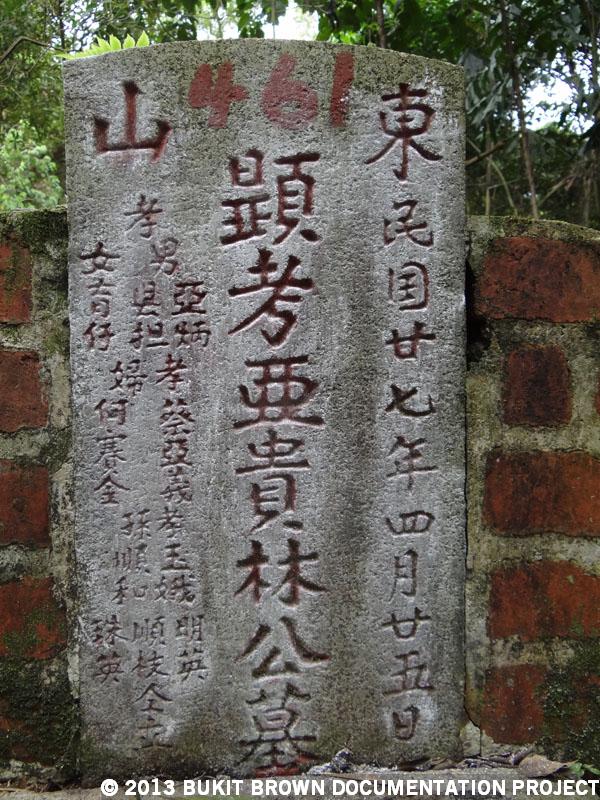 461
東
民国廿七年四月廿五日
顕考亜貴林公墓
山
孝男
亞炳
担
女
仔
孝婦
蔡亞義
何賽金
孝孫
玉娥
順和
明英
順枝
珠英
仝立
© 2013 BUKIT BROWN DOCUMENTATION PROJECT